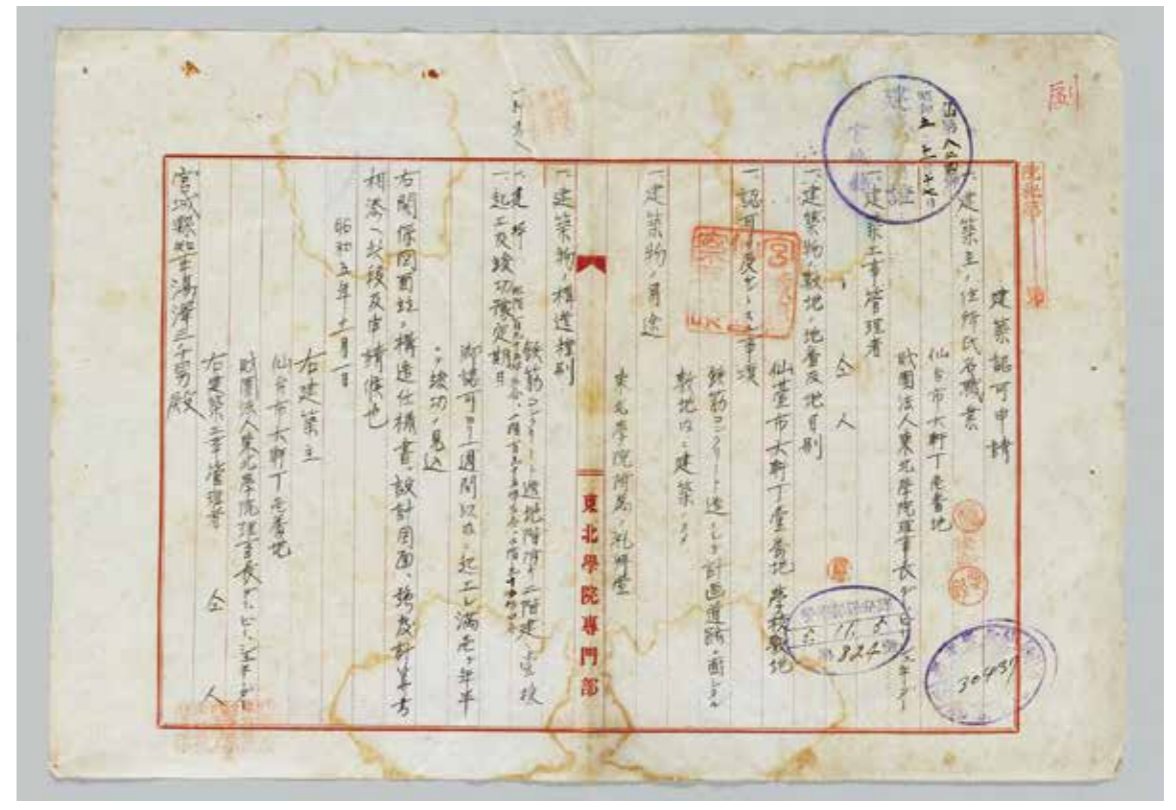 副
建築認可申請
一、建築主ノ住所氏名職業
仙台市大軒丁壱番地
財團法人東北學院理事長
一、建築工事管理者
仝人
一、建築物ノ敷地ノ地番及地目別
仙臺市大軒丁壱番地 學校敷地
一、認可ヲ受ケントスル事項
鉄筋コンクリート造ニシテ計画道路ニ面シタル
敷地内ニ建築
一、建築物ノ用途
東北學院附属ノ礼拝堂
一、建築物ノ構造種別
鉄筋コンクリート造地階附二階建
一、建坪
一、起工及竣功予定期日
御認可ヨリ一週間以内ニ起工シ満壱ヶ年半
ニテ竣功ノ見込
右関係図面並ニ構造仕様書、設計図面、強度計算書
相添ヘ此段及申請候也
昭和五年十一月一日
右建築主
仙台市大軒丁壱番地
財團法人東北學院理事長
右建築工事管理者
仝人
宮城縣知事湯澤三千男殿
東北學院專門部
11.8
824
30437